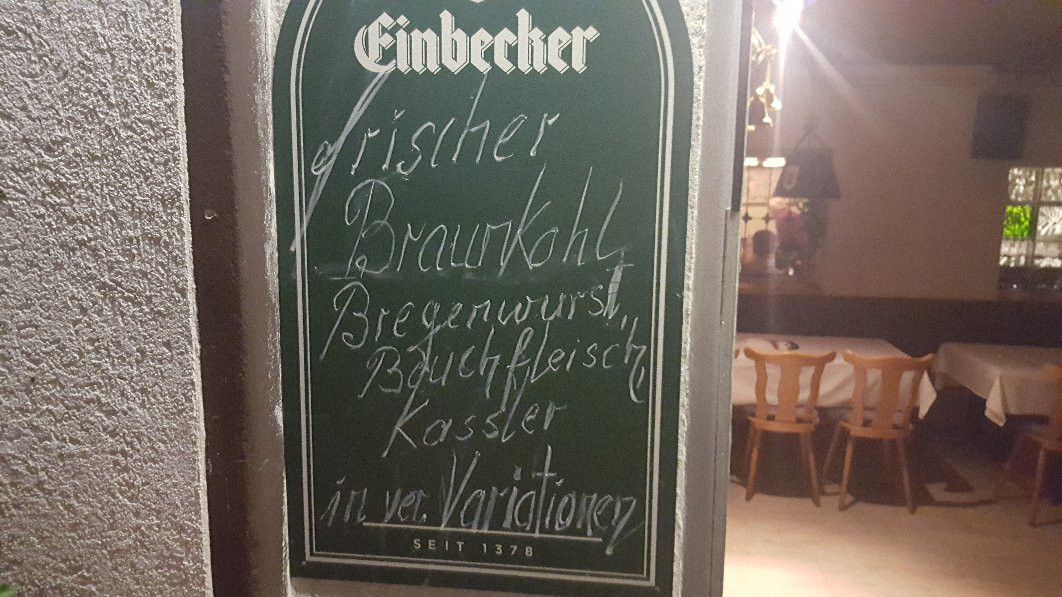 Einbecker
frischer
Braunkohl
Bregenwurst,
Bauchfleisch,
Kassler
in ver. Variationen
SEIT 1378